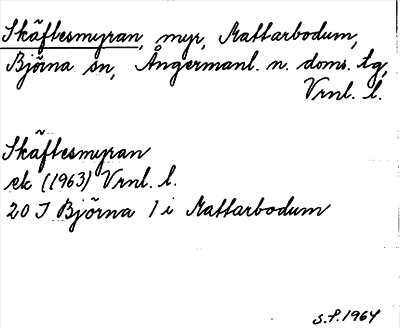 Skäftesmyran, myr, Mattarbodum,
Björna sn, Ångermanl. n. doms. tg,
Vrnl. l.
Skäftesmyran
ek (1963) Vrnl. l.
20 J Björna 1 i Mattarbodum
S.P. 1964